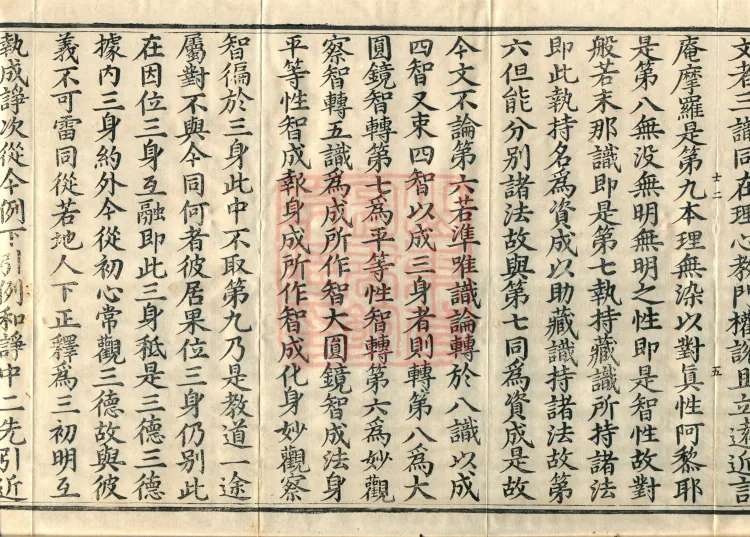 文者三識同在理心教門權說且立遠近言
庵摩羅是第九本理無染以對真性阿黎耶
是第八無没無明無明之性即是智性故對
般若末那識即是第七執持藏識所持諸法
即此執持名為資成以助藏識持諸法故第
六但能分別諸法故與第七同為資成是故
今文不論第六若準唯識論轉於八識以成
四智又束四智以成三身者則轉第八為大
圓鏡智轉第七為平等性智轉第六為妙觀
察智轉五識為成所作智大圓鏡智成法身
平等性智成報身成所作智成化身妙觀察
智徧於三身此中不取第九乃是教道一途
屬對不與今同何者彼居果位三身仍別此
在因位三身互融即此三身秖是三德三德
據内三身約外今從初心常觀三德故與彼
義不可雷同從若地人下正釋為三初明互
執成諍次從今例下引例和諍中二先引近
十二
五